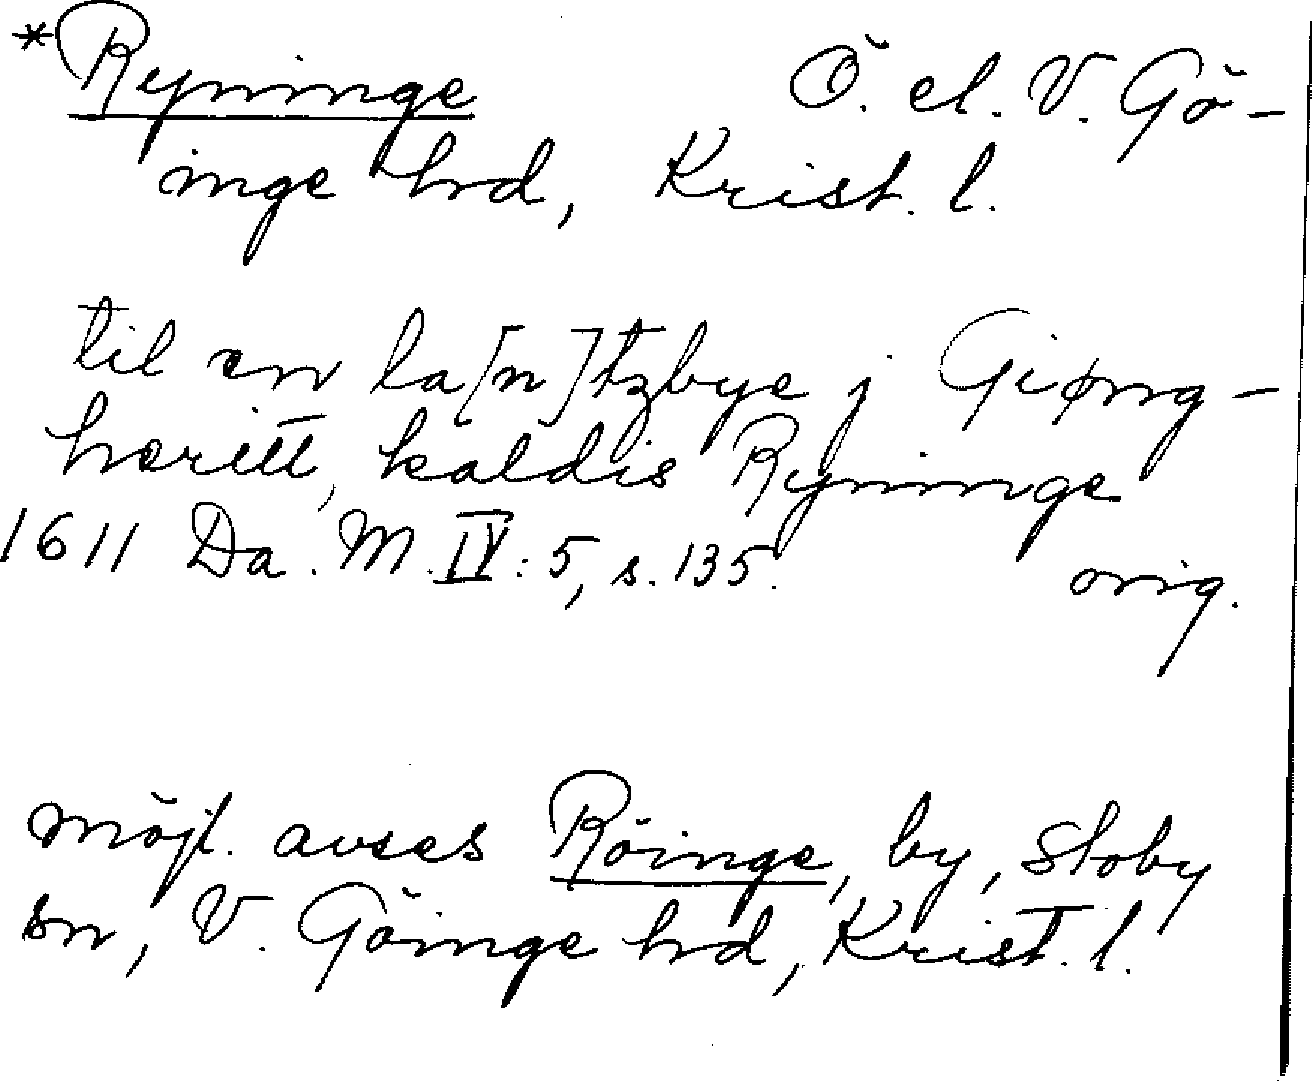 *Ryninge Ö. el. V. Gö-
inge hrd, Krist. l.
til en la[n]tzbye j Giøng-
heritt, kaldis Ryninge
1611 Da. M. IV: 5, s. 135. orig.
möjl. avses Röinge, by, Stoby
sn, V. Göinge hrd, Krist. l.